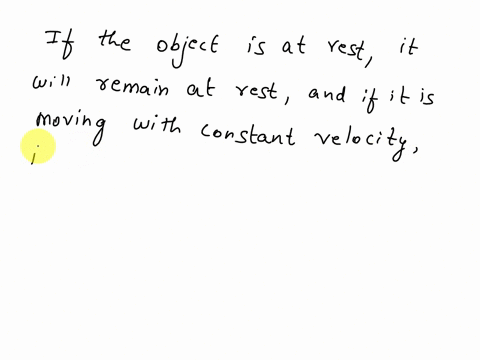 If the object is at rest, it
will remain at rest, and if it is
moving with constant velocity,
i